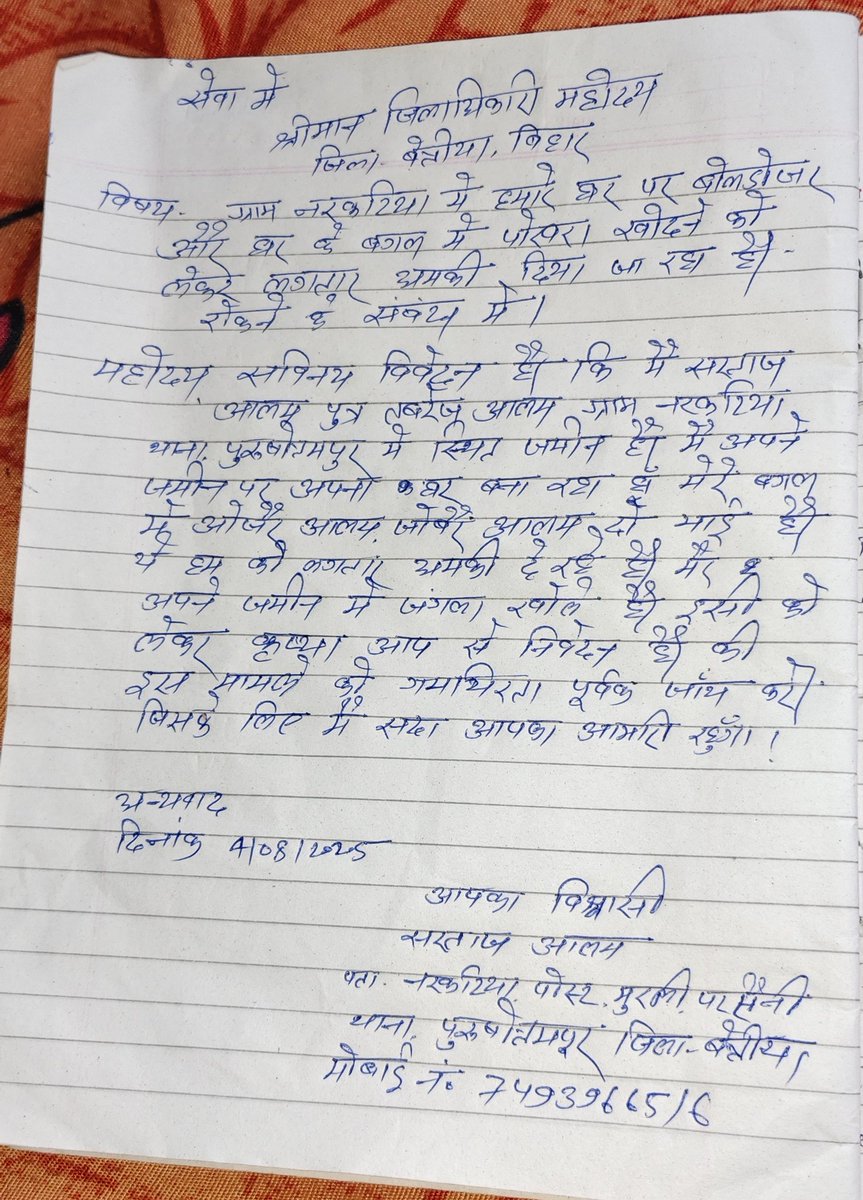 सेवा में
श्रीमान जिलाधिकारी महोदय
जिला- बेतीया, बिहार
विषय- ग्राम नरकटिया में हमारे घर पर बोलडोजर
और घर के बगल में पोखरा खोदने को
लेकर लगतार धमकी दिया जा रहा है।
रोकने के संबंध में।
महोदय, सविनय निवेदन है कि मैं सरताज
आलम पुत्र तबरेज आलम ग्राम नरकटिया
थाना, पुरुषोतमपुर में स्थित जमीन है। मैं अपने
जमीन पर अपना घर बना रहा हूँ मेरे बगल
में ओजैर आलम, जोबैर आलम दो भाई है
ये हम को लगतार धमकी दे रहे है।
अपने जमीन में जंगला खोले है। इसी को
लेकर कृप्या आप से निवेदन है की
इस मामले को गमभिरता पूर्वक जाँच करें
जिसके लिए मैं सदा आपका आभारी रहुँगा।
धन्यवाद
दिनांक 4/08/2025
आपका विश्वासी
सरताज आलम
पता- नरकटिया, पोस्ट, मुरली, परसौनी
थाना, पुरुषोत्तमपुर जिला- बेतीया,
मोबाई नं० 7493966516